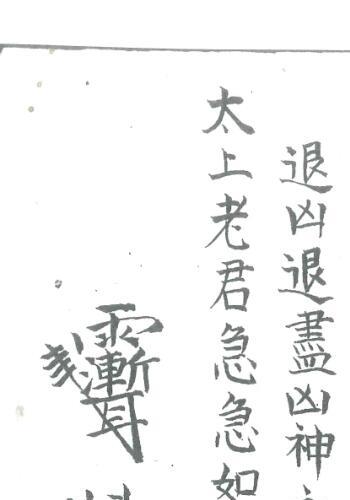 退凶退盡凶神
太上老君急急如